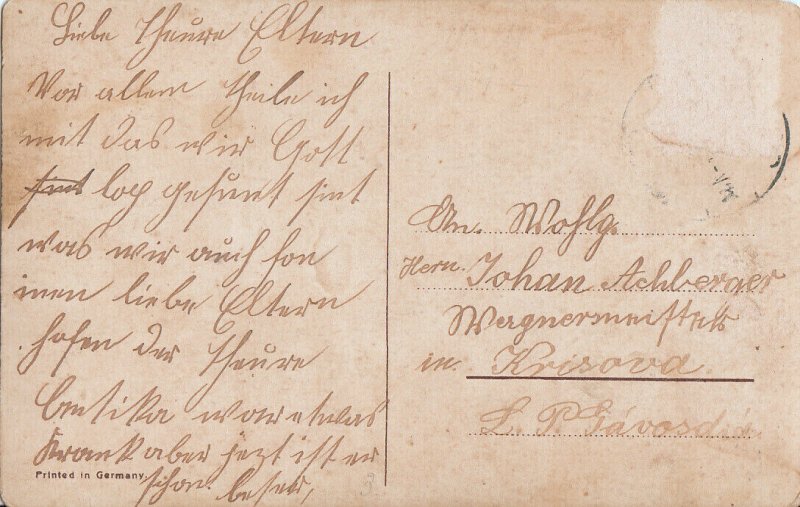 Liebe Theure Eltern
Vor allem theile ich
mit das wir Gott
lop gesunt sint
was wir auch fon
inen liebe Eltern
hofen der Theure
Antika war etwas
Krank aber jezt ist er
schon beser,
Printed in Germany.
An. Wohlg.
Herrn. Johan Achberger
Wagnermeister
in. Krisova.
L. P. Gávosdia
3